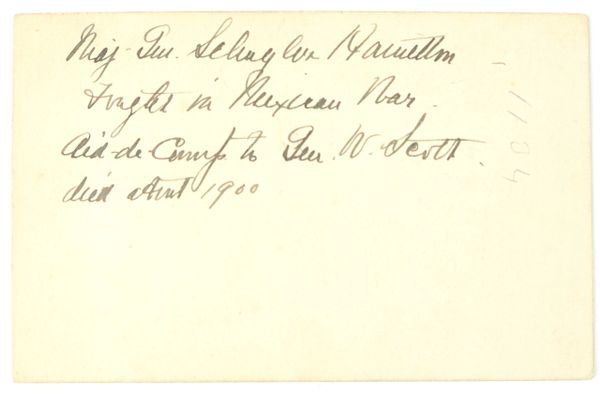 Maj. Gen. Schuyler Hamilton
Fought in Mexican War.
Aid-de-Camp to Gen. W. Scott.
died about 1900